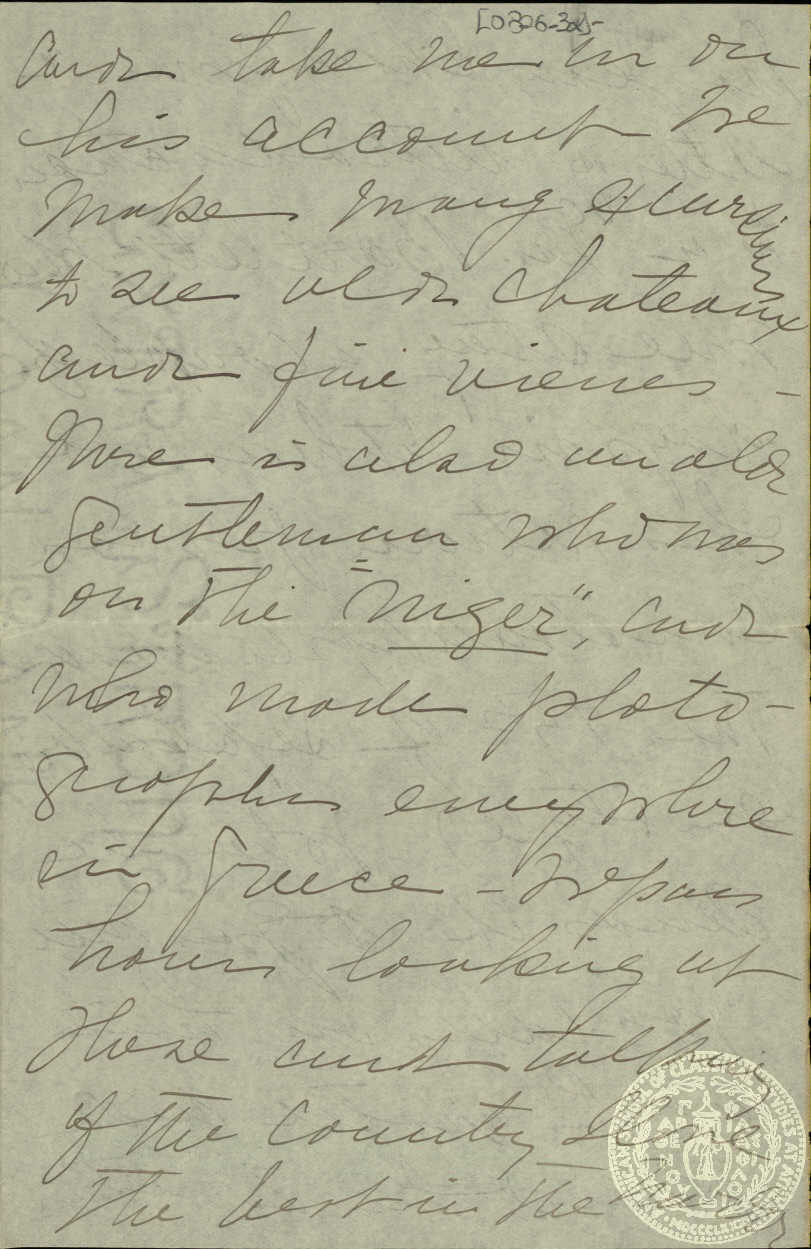 [0326-325-
and take me in on
his account We
make many excursions
to see old chateaux
and fine views -
There is also an old
gentleman who was
on the "Niger", and
who made photo-
graphs everywhere
in Greece - We pass
hours looking at
those and talking
of the country I love
the best in the
OF CLASSICAL STUDIES AT
MDCCCLXXXI